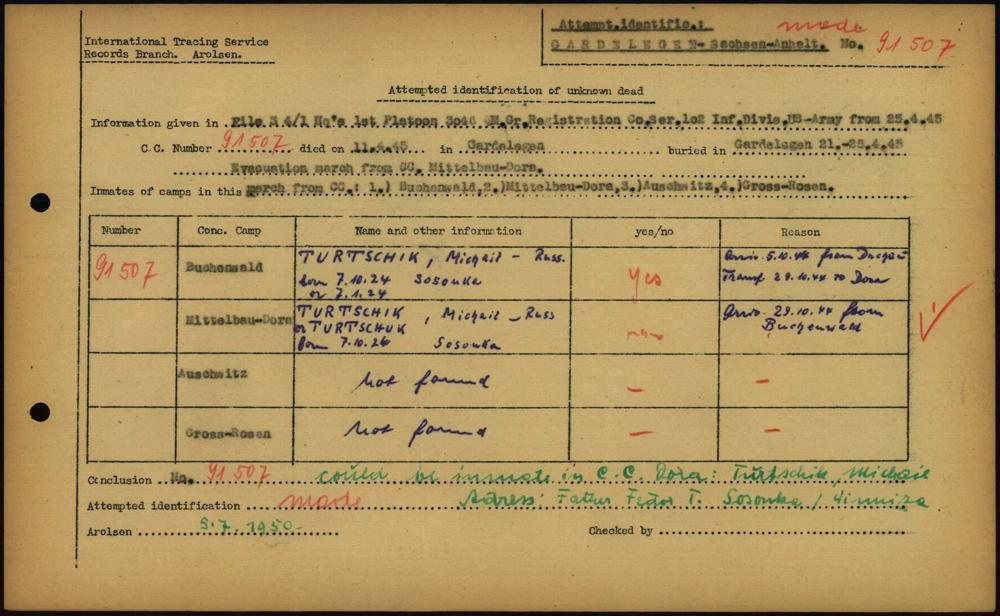 Attempt.identific.: made
International Tracing Service
GARDELEGEN-Sachsen-Anhalt. No. 91507
Records Branch. Arolsen.
Attempted identification of unknown dead
Information given in File S 4/1 Hq's 1st Platoon 3046 QM.Gr.Registration Co,Ser,1o2 Inf.Divis,US-Army from 25.4.45
C.C. Number 91507 died on 11.4.45 in Gardelegen buried in Gardelegen 21.-25.4.45
Evacuation march from CC. Mittelbau-Dora.
Inmates of camps in this march from CC.: 1.) Buchenwald,2.)Mittelbau-Dora,3.)Auschwitz,4.)Gross-Rosen.
Number Conc. Camp Name and other information yes/no Reason
91507 Buchenwald TURTSCHIK, Michail - Russ. yes arriv. 5.10.44 from Dachau
born 7.10.24 Sosonka Transf. 29.10.44 to Dora
or 7.1.24
Mittelbau-Dora TURTSCHIK, Michail - Russ Arriv. 29.10.44 from
or TURTSCHUK Buchenwald
born 7.10.24 Sosonka
Auschwitz not found - -
Gross-Rosen not found - -
Conclusion No. 91507 could be inmate in C.C. Dora: Turtschik, Michail
Attempted identification made Adress: Father Fedor T. Sosonka / Winniza
Arolsen 5.7.1950 Checked by